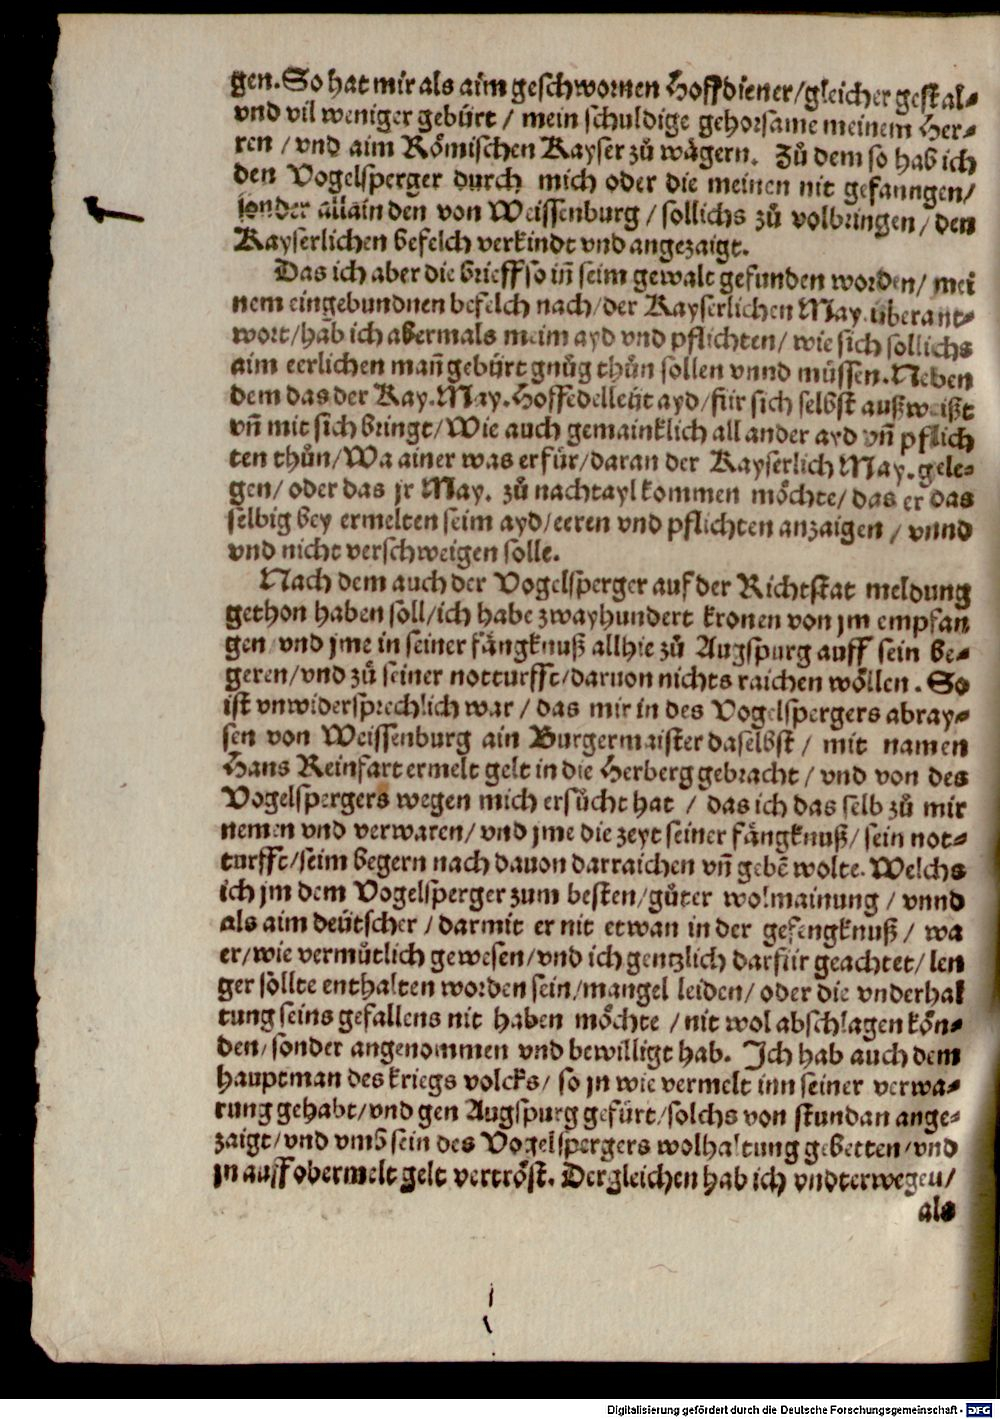 gen. So hat mir als aim geschwornen Hoffdiener/ gleicher gestal⸗
vnd vil weniger gebürt / mein schuldige gehorsame meinem Her⸗
ren / vnd aim Römischen Kayser zů wägern. Zů dem so hab ich
den Vogelsperger durch mich oder die meinen nit gefanngen/
sonder allain den von Weissenburg / sollichs zů volbringen/ den
Kayserlichen befelch verkindt vnd angezaigt.
Das ich aber die brieff so in̄ seim gewalt gefunden worden/ mei
nem eingebundnen befelch nach/ der Kayserlichen May. überant⸗
wort/ hab ich abermals meim ayd vnd pflichten/ wie sich sollichs
aim eerlichen man̄ gebürt gnůg thůn sollen vnnd müssen. Neben
dem das der Kay. May. Hoffedelleüt ayd/ für sich selbst außweißt
vn̄ mit sich bringt/ Wie auch gemainklich all ander ayd vn̄ pflich
ten thůn/ Wa ainer was erfür/ daran der Kayserlich May. gele⸗
gen/ oder das jr May. zů nachtayl kommen möchte/ das er das
selbig bey ermelten seim ayd/ eeren vnd pflichten anzaigen / vnnd
vnd nicht verschweigen solle.
Nach dem auch der Vogelsperger auf der Richtstat meldung
gethon haben soll/ ich habe zwayhundert kronen von jm empfan
gen vnd jme in seiner fängknuß allhie zů Augspurg auff sein be⸗
geren/ vnd zů seiner notturfft/ daruon nichts raichen wöllen. So
ist vnwidersprechlich war / das mir in des Vogelspergers abray⸗
sen von Weissenburg ain Burgermaister daselbst / mit namen
Hans Reinfart ermelt gelt in die Herberg gebracht / vnd von des
Vogelspergers wegen mich ersůcht hat / das ich das selb zů mir
nemen vnd verwaren/ vnd jme die zeyt seiner fängknuß/ sein not⸗
turfft/ seim begern nach dauon darraichen vn̄ gebē wolte. Welchs
ich jm dem Vogelsperger zum besten/ gůter wolmainung / vnnd
als aim deütscher / darmit er nit etwan in der gefengknuß / wa
er/ wie vermůtlich gewesen/ vnd ich gentzlich darfür geachtet/ len
ger sollte enthalten worden sein/ mangel leiden/ oder die vnderhal
tung seins gefallens nit haben möchte / nit wol abschlagen kön⸗
den/ sonder angenommen vnd bewilligt hab. Ich hab auch dem
hauptman des kriegs volcks/ so jn wie vermelt inn seiner verwa⸗
rung gehabt/ vnd gen Augspurg gefürt/ solchs von stundan ange⸗
zaigt/ vnd vmb sein des Vogelspergers wolhaltung gebetten/ vnd
jn auff obermelt gelt vertröst. Dergleichen hab ich vndterwegen/
als
Digitalisierung gefördert durch die Deutsche Forschungsgemeinschaft - DFG